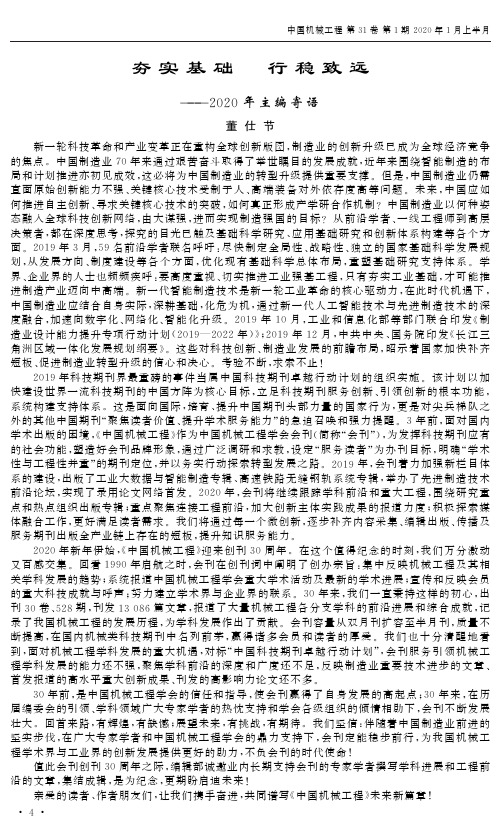 中国机械工程 第31卷 第1期 2020年1月上半月
夯实基础　行稳致远
——2020年主编寄语
董仕节
新一轮科技革命和产业变革正在重构全球创新版图,制造业的创新升级已成为全球经济竞争
的焦点。中国制造业70年来通过艰苦奋斗取得了举世瞩目的发展成就,近年来围绕智能制造的布
局和计划推进亦初见成效,这必将为中国制造业的转型升级提供重要支撑。但是,中国制造业仍需
直面原始创新能力不强、关键核心技术受制于人、高端装备对外依存度高等问题。未来,中国应如
何推进自主创新、寻求关键核心技术的突破,如何真正形成产学研合作机制?中国制造业以何种姿
态融入全球科技创新网络,由大谋强,进而实现制造强国的目标?从前沿学者、一线工程师到高层
决策者,都在深度思考,探究的目光已触及基础科学研究、应用基础研究和创新体系构建等各个方
面。2019年3月,59名前沿学者联名呼吁:尽快制定全局性、战略性、独立的国家基础科学发展规
划,从发展方向、制度建设等各个方面,优化现有基础科学总体布局,重塑基础研究支持体系。学
界、企业界的人士也频频疾呼:要高度重视、切实推进工业强基工程,只有夯实工业基础,才可能推
进制造产业迈向中高端。新一代智能制造技术是新一轮工业革命的核心驱动力,在此时代机遇下,
中国制造业应结合自身实际,深耕基础,化危为机,通过新一代人工智能技术与先进制造技术的深
度融合,加速向数字化、网络化、智能化升级。2019年10月,工业和信息化部等部门联合印发《制
造业设计能力提升专项行动计划(2019—2022年)》;2019年12月,中共中央、国务院印发《长江三
角洲区域一体化发展规划纲要》。这些对科技创新、制造业发展的前瞻布局,昭示着国家加快补齐
短板、促进制造业转型升级的信心和决心。考验不断,求索不止!
2019年科技期刊界最重磅的事件当属中国科技期刊卓越行动计划的组织实施。该计划以加
快建设世界一流科技期刊的中国方阵为核心目标,立足科技期刊服务创新、引领创新的根本功能,
系统构建支持体系。这是面向国际,培育、提升中国期刊头部力量的国家行为,更是对尖兵梯队之
外的其他中国期刊“聚焦读者价值、提升学术服务能力”的急迫召唤和强力提醒。3年前,面对国内
学术出版的困境,《中国机械工程》作为中国机械工程学会会刊(简称“会刊”),为发挥科技期刊应有
的社会功能,塑造好会刊品牌形象,通过广泛调研和求教,设定“服务读者”为办刊目标,明确“学术
性与工程性并重”的期刊定位,并以务实行动探索转型发展之路。2019年,会刊着力加强新栏目体
系的建设,出版了工业大数据与智能制造专辑、高速铁路无缝钢轨系统专辑,举办了先进制造技术
前沿论坛,实现了录用论文网络首发。2020年,会刊将继续跟踪学科前沿和重大工程,围绕研究重
点和热点组织出版专辑;重点聚焦连接工程前沿,加大创新主体实践成果的报道力度;积极探索媒
体融合工作,更好满足读者需求。我们将通过每一个微创新,逐步补齐内容采集、编辑出版、传播及
服务期刊出版全产业链上存在的短板,提升知识服务能力。
2020年新年伊始,《中国机械工程》迎来创刊30周年。在这个值得纪念的时刻,我们万分激动
又百感交集。回看1990年启航之时,会刊在创刊词中阐明了创办宗旨:集中反映机械工程及其相
关学科发展的趋势;系统报道中国机械工程学会重大学术活动及最新的学术进展;宣传和反映会员
的重大科技成就与呼声;努力建立学术界与企业界的联系。30年来,我们一直秉持这样的初心,出
刊30卷、528期,刊发13 086篇文章,报道了大量机械工程各分支学科的前沿进展和综合成就,记
录了我国机械工程的发展历程,为学科发展作出了贡献。会刊容量从双月刊扩容至半月刊,质量不
断提高,在国内机械类科技期刊中名列前茅,赢得诸多会员和读者的厚爱。我们也十分清醒地看
到,面对机械工程学科发展的重大机遇,对标“中国科技期刊卓越行动计划”,会刊服务引领机械工
程学科发展的能力还不强,聚焦学科前沿的深度和广度还不足,反映制造业重要技术进步的文章、
首发报道的高水平重大创新成果、刊发的高影响力论文还不多。
30年前,是中国机械工程学会的信任和指导,使会刊赢得了自身发展的高起点;30年来,在历
届编委会的引领、学科领域广大专家学者的热忱支持和学会各级组织的倾情相助下,会刊不断发展
壮大。回首来路,有辉煌,有缺憾;展望未来,有挑战,有期待。我们坚信:伴随着中国制造业前进的
坚实步伐,在广大专家学者和中国机械工程学会的鼎力支持下,会刊定能稳步前行,为我国机械工
程学术界与工业界的创新发展提供更好的助力,不负会刊的时代使命!
值此会刊创刊30周年之际,编辑部诚邀业内长期支持会刊的专家学者撰写学科进展和工程前
沿的文章,集结成辑,是为纪念,更期盼启迪未来!
亲爱的读者、作者朋友们,让我们携手奋进,共同谱写《中国机械工程》未来新篇章!
· 4 ·